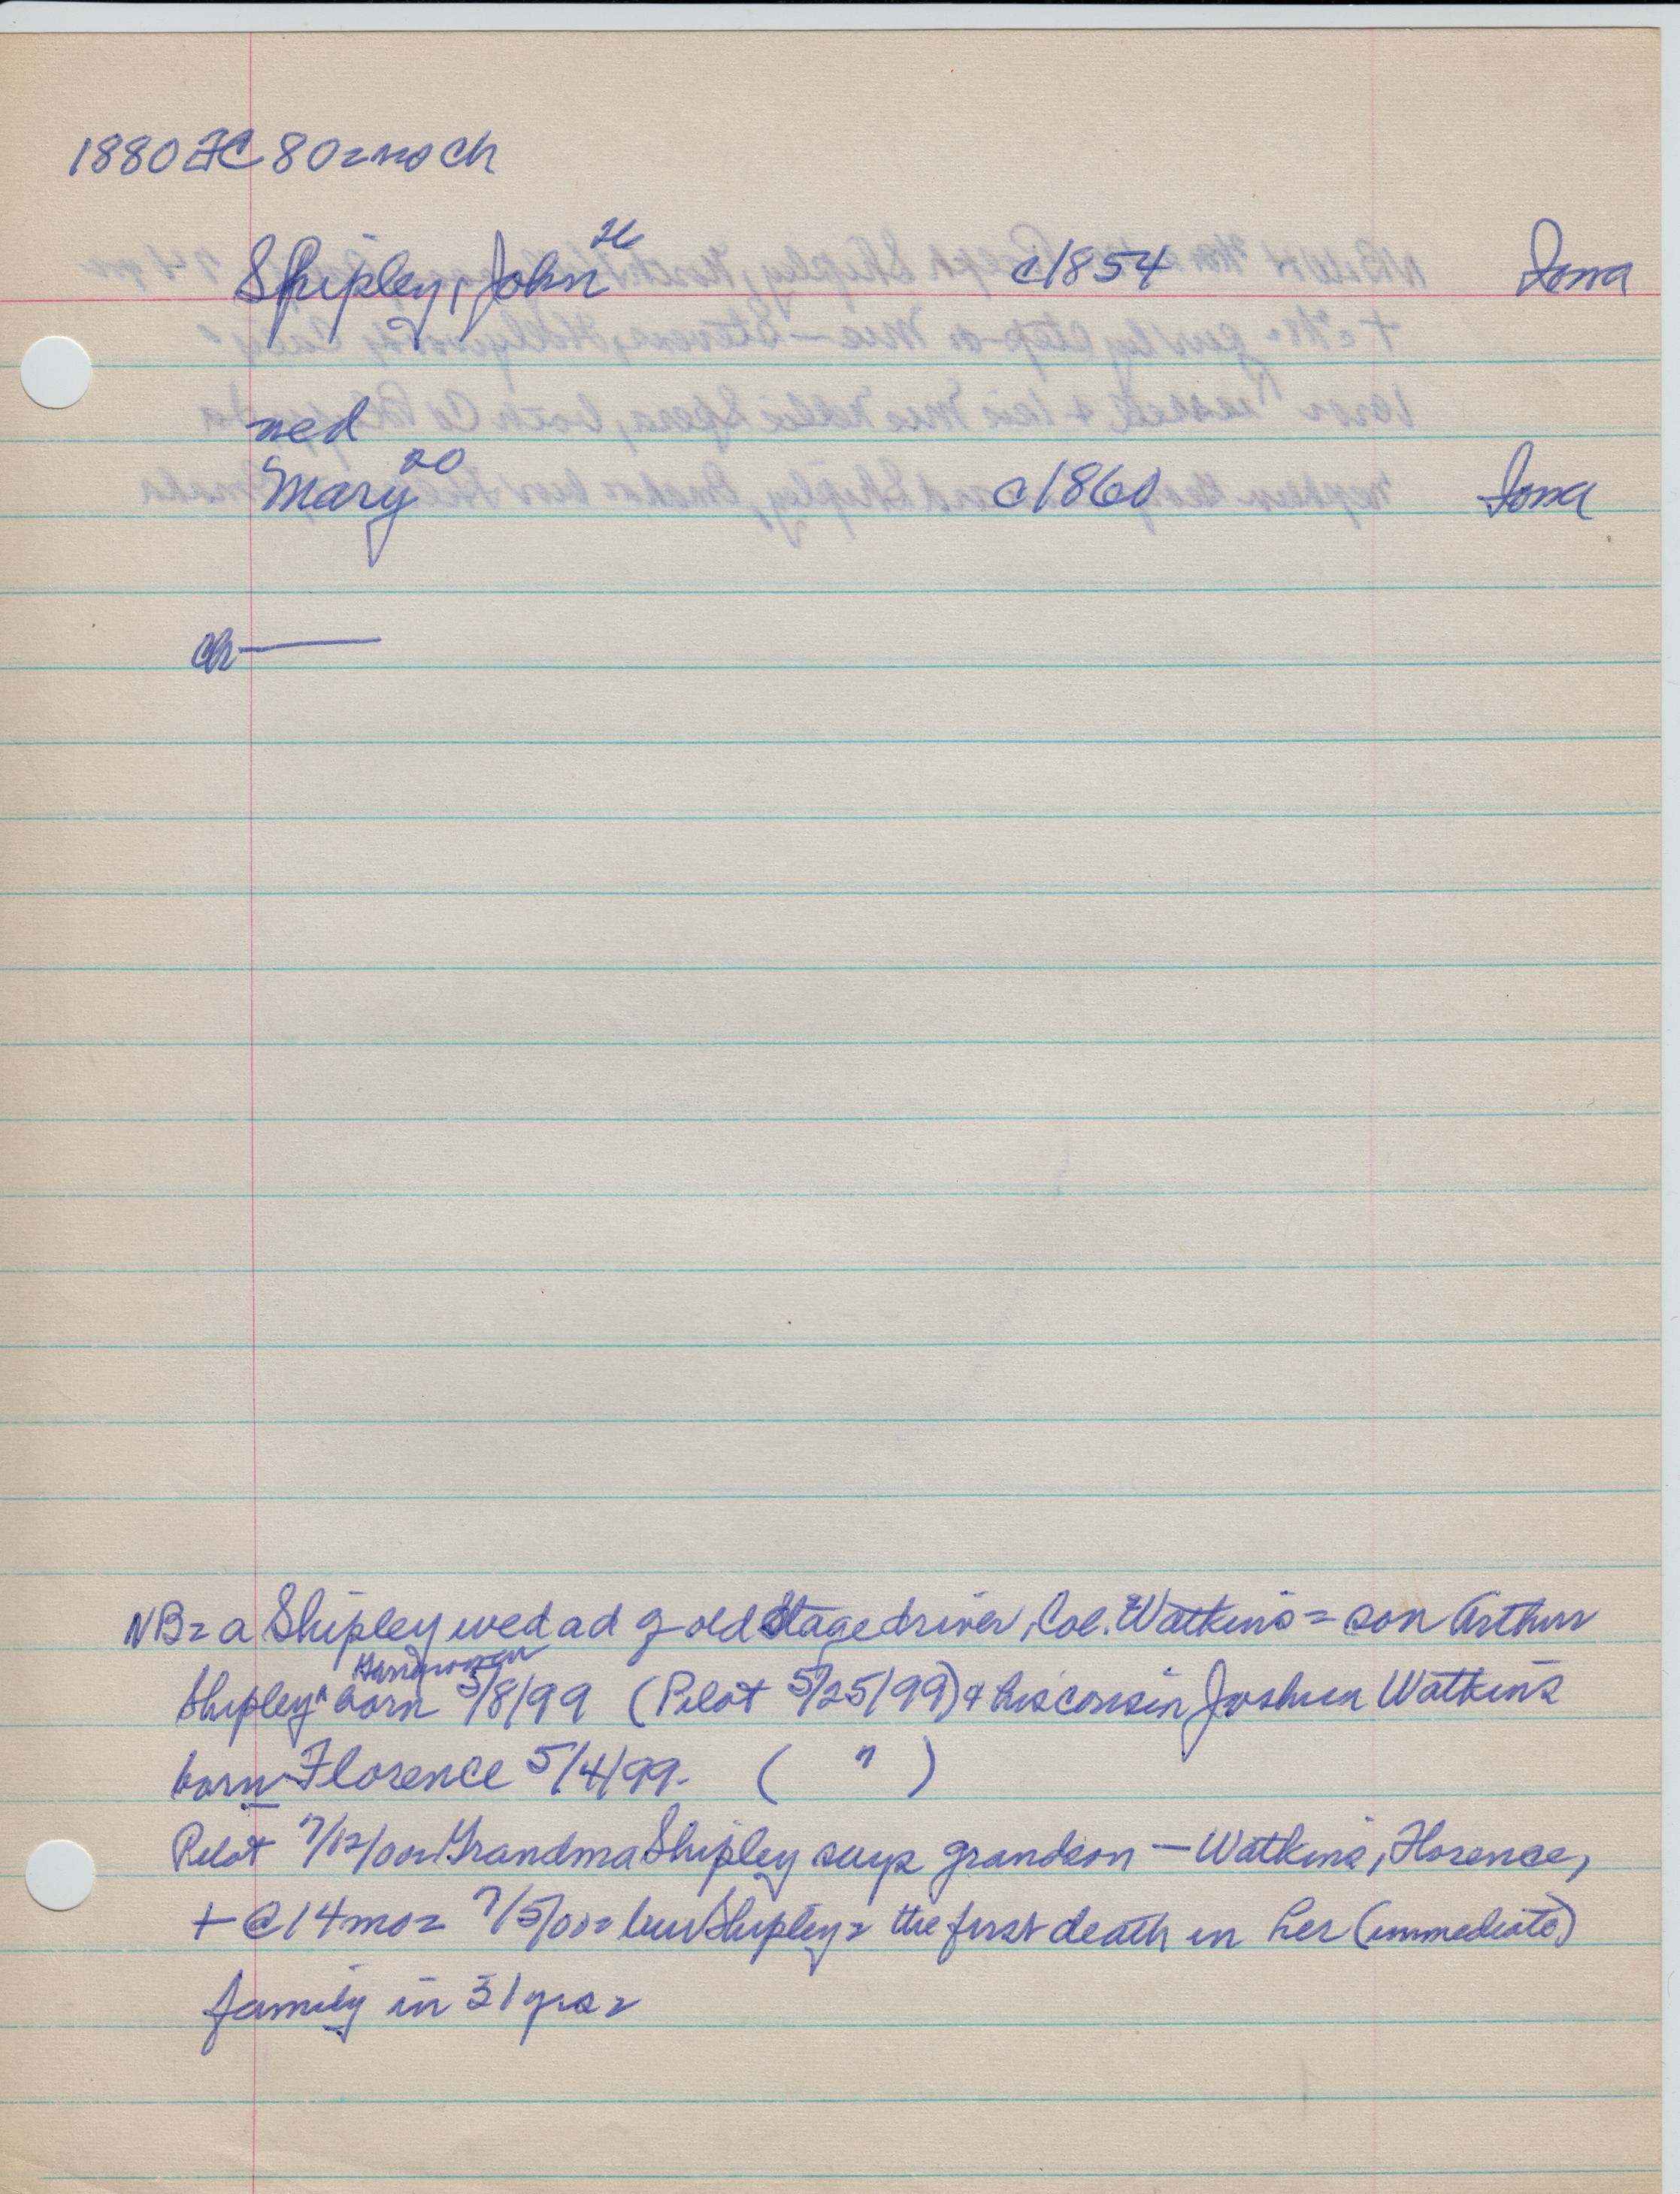 1880 FC 80 = no ch
Shipley, John 26 c1854 Iowa
wed
Mary 20 c1860 Iowa
ch —
NB = a Shipley wed a d of old stage driver, Col. Watkins = son Arthur
Shipley born 5/8/99 (Pilot 5/25/99) & his cousin Joshua Watkins
born Florence 5/4/99. ( " )
Pilot 7/12/00 = Grandma Shipley says grandson — Watkins, Florence,
+ @ 14 mo = 7/5/00 = bur Shipley = the first death in her (immediate)
family in 31 yrs =